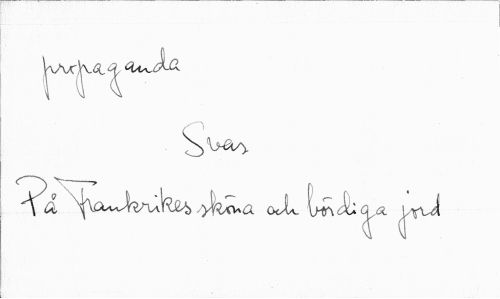 propaganda
Svas
På Frankrikes sköna och bördiga jord